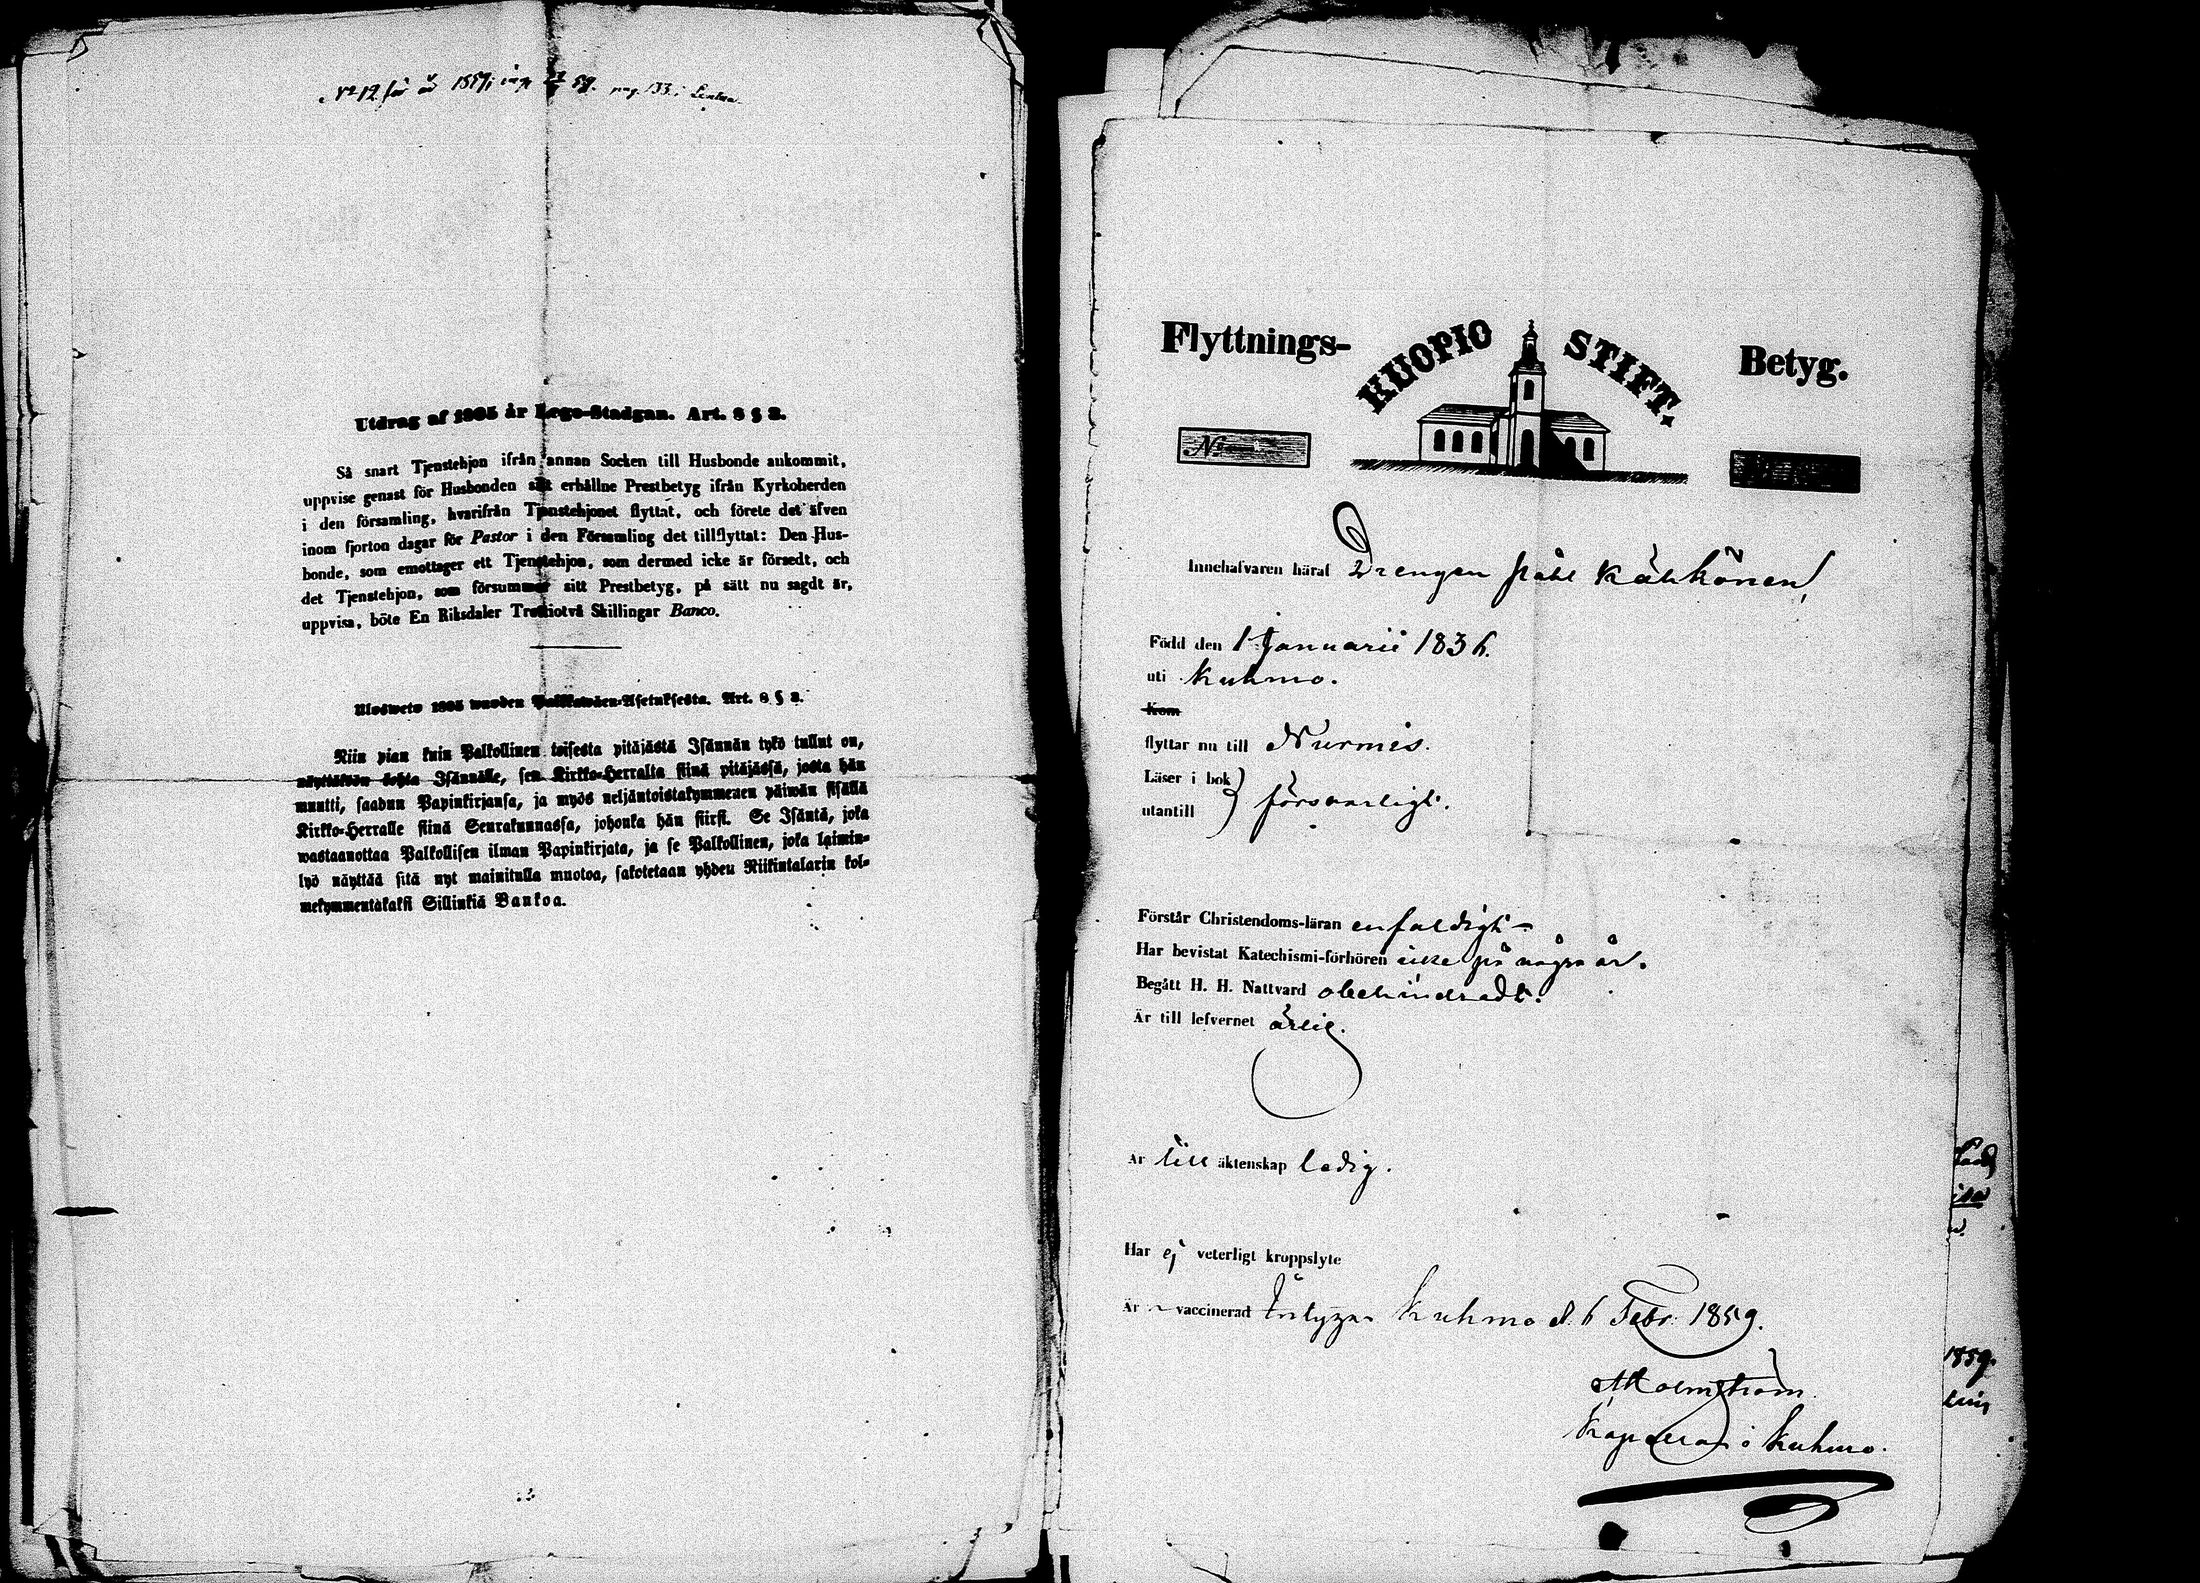 No 12 för år 1859; ing. 59. pag. 133. Lentua.
Utdrag af 1805 år Lego-Stadgan. Art. 8 § 2.
Så snart Tjenstehjon ifrån annan Socken till Husbonde ankommit,
uppvise genast för Husbonden sitt erhållne Prestbetyg ifrån Kyrkoherden
i den församling, hvarifrån Tjenstehjonet flyttat, och förete det äfven
inom fjorton dagar för Pastor i den Församling det tillflyttat: Den Hus-
bonde, som emottager ett Tjenstehjon, som dermed icke är försedt, och
det Tjenstehjon, som försummar sitt Prestbetyg, på sätt nu sagdt är,
uppvisa, böte En Riksdaler Trettiotvå Skillingar Banco.
Ulosweto 1805 wuoden Palkkawäen-Asetuksesta. Art. 8 § 2.
Niin pian kuin Palkollinen toisesta pitäjästä Isännän tykö tullut on,
näyttäkön kohta Isännälle, sen Kirkko-Herralta siinä pitäjässä, josta hän
muutti, saadun Papinkirjansa, ja myös neljäntoistakymmenen päiwän sisällä
Kirkko-Herralle siinä Seurakunnassa, johonka hän siirsi. Se Isäntä, joka
wastaanottaa Palkollisen ilman Papinkirjata, ja se Palkollinen, joka laimin-
lyö näyttää sitä nyt mainitulla muotoa, sakotetaan yhden Riikintalarin kol-
mekymmentäkaksi Sillinkiä Bankoa.
Flyttnings- KUOPIO STIFT. Betyg.
No
Innehafvaren häraf Drengen Påhl Kähkönen,
Född den 1 Januarii 1836.
uti Kuhmo.
Kom
flyttar nu till Nurmis.
Läser i bok
utantill } försvarligt.
Förstår Christendoms-läran enfaldigt
Har bevistat Katechismi-förhören icke på några år.
Begått H. H. Nattvard obehindradt.
Är till lefvernet ärlig.
Är till äktenskap ledig.
Har ej veterligt kroppslyte
Är vaccinerad Intygar Kuhmo d. 6 Febr. 1859.
Holmström
Kapellan i Kuhmo.
1859.